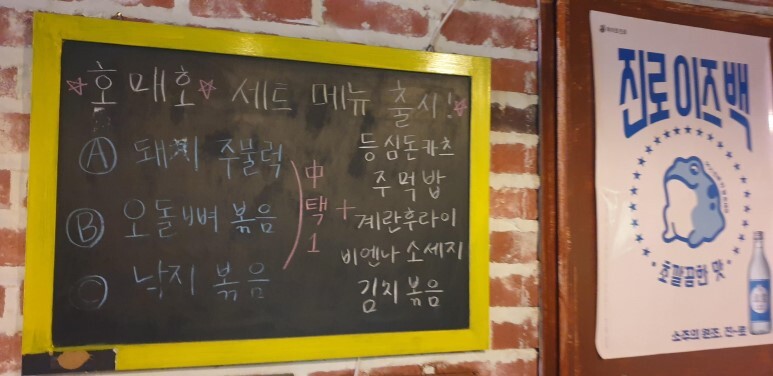 홍매호 세트 메뉴 출시!
A 돼지 주물럭
B 오돌뼈 볶음
C 낙지 볶음
中택1
+
등심돈카츠
주먹밥
계란후라이
비엔나 소세지
김치볶음
진로이즈백
초깔끔한 맛
소주의 원조, 진로